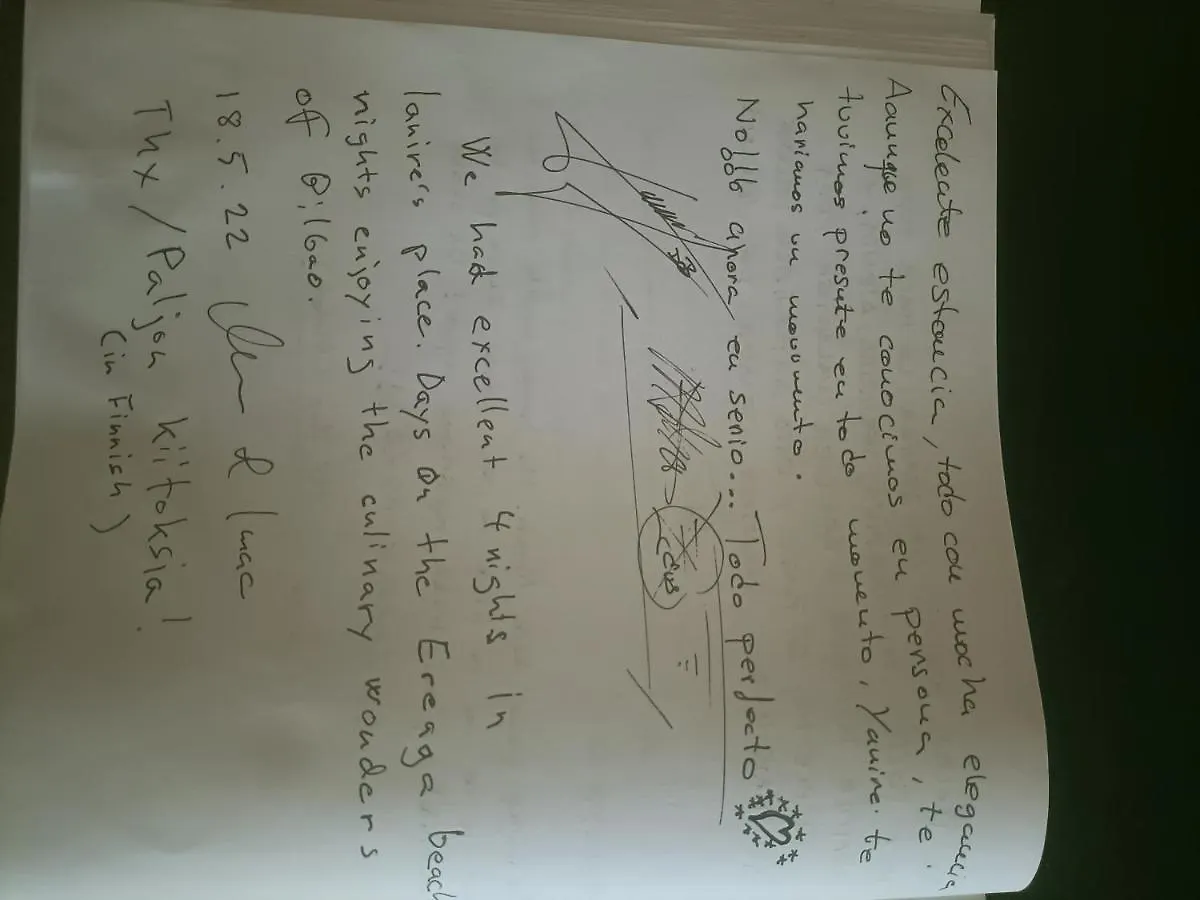 Excelente estancia, todo con mocha elegancia
Aaunque no te conocimos en persona, te
tuvimos presente en todo momento, Yanire. te
hariamos un monumento.
No apora en serio... Todo perfecto
We had excellent 4 nights in
Ianire's place. Days on the Ereaga beach
nights enjoying the culinary wonders
of Bilbao.
18.5.22 &
Thx / Paljon kiitoksia!
(in Finnish)